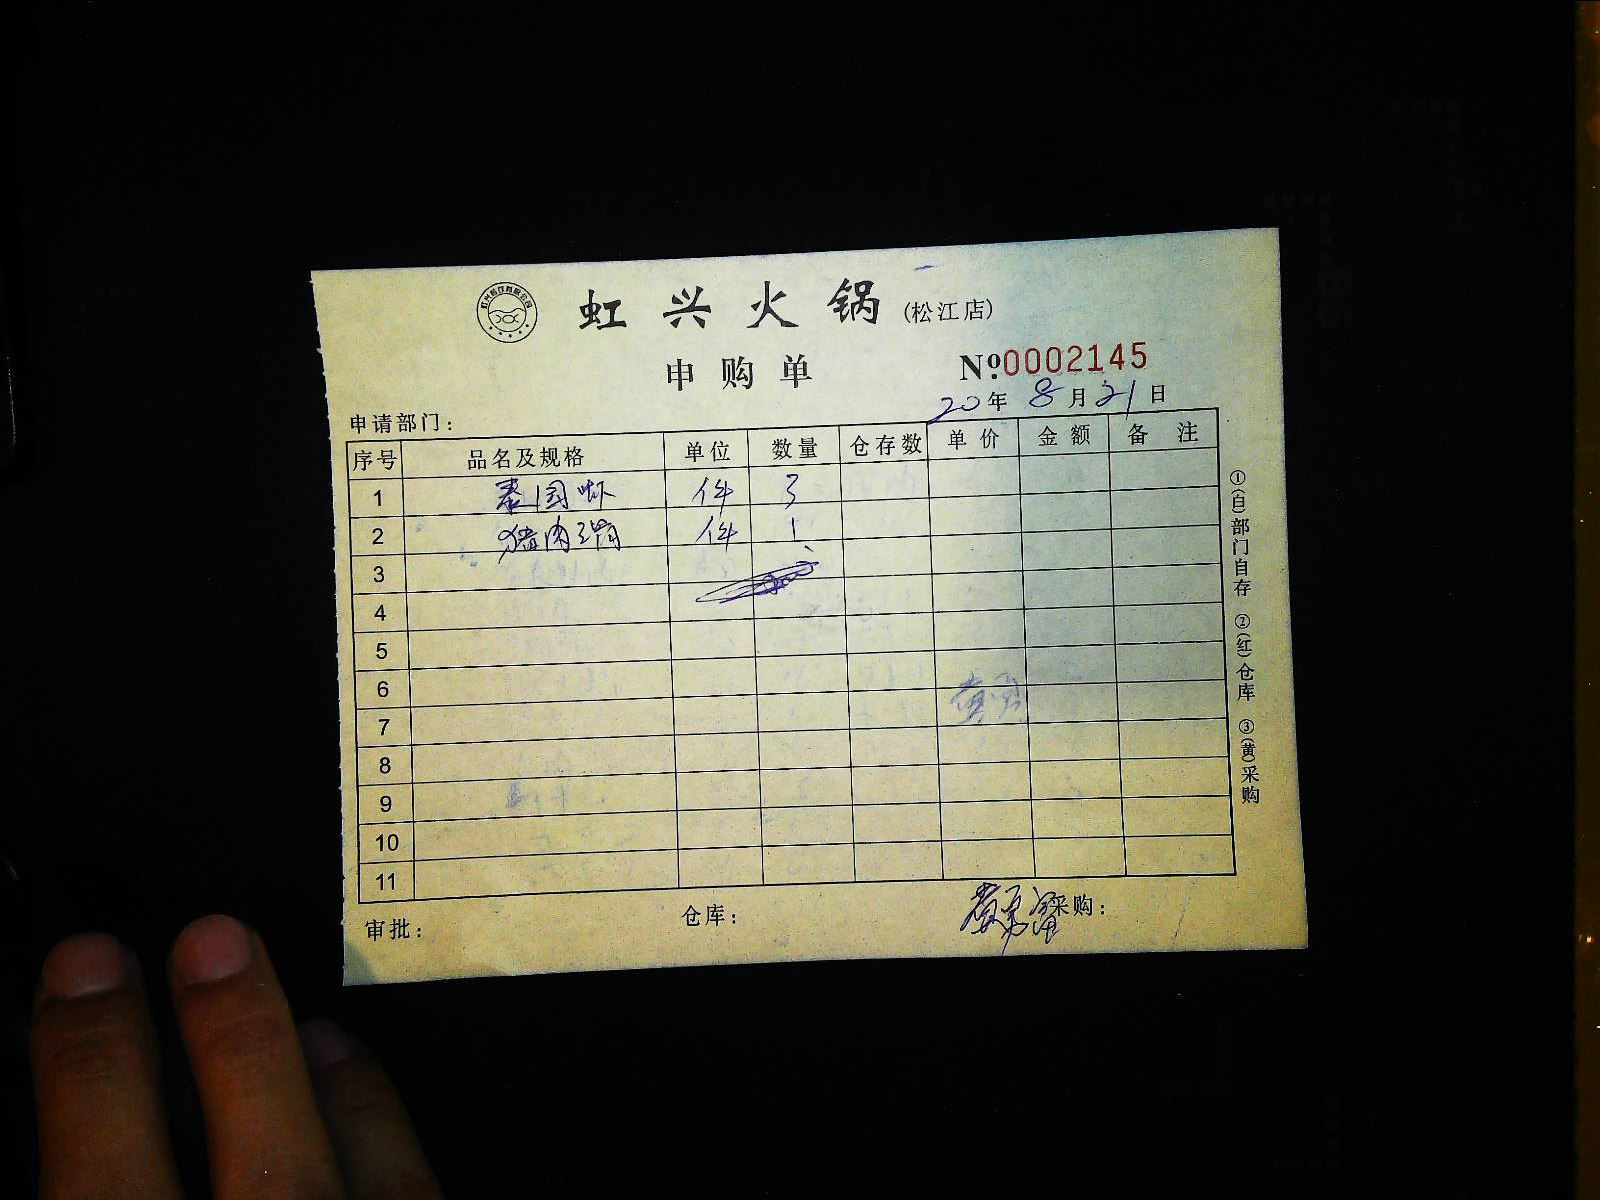 虹兴火锅 (松江店)
申购单 Nº.0002145
20年 8月21日
申请部门：
序号 品名及规格 单位 数量 仓存数 单价 金额 备注
1 泰国虾 件 3
2 猪肉 件 1
3
4
5
6
7
8
9
10
11
①(白)部门自存 ②(红)仓库 ③(黄)采购
审批： 仓库： 采购：